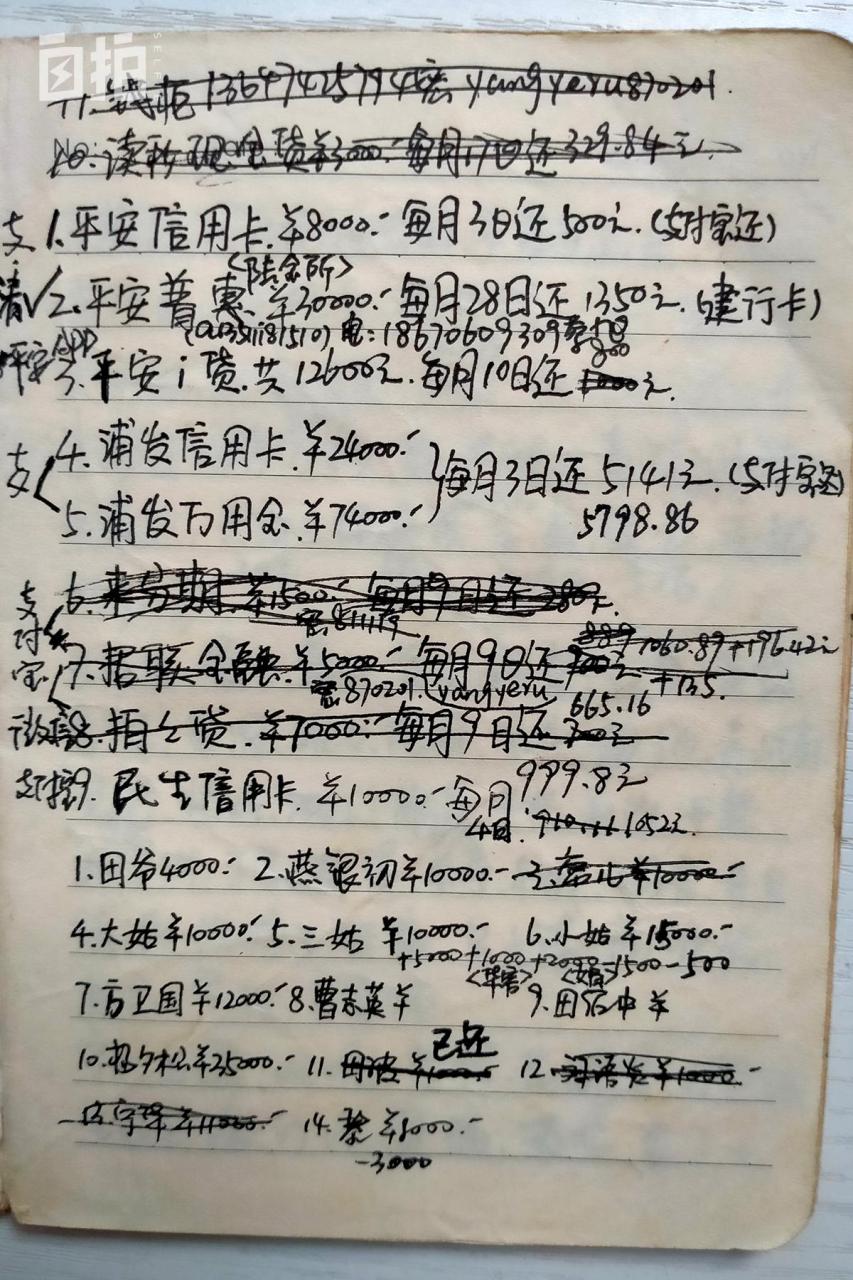 自护
SELF
11. 钱柜 13647425794 密 yangyeru870201.
10. 读秒现金贷 ¥3000.- 每月17日还329.84元.
支 1. 平安信用卡.¥8000.- 每月3日还500元.(支付宝还)
<陆金所>
清√2. 平安普惠.¥30000.- 每月28日还1350元.(建行卡)
电:18670609309
平安APP 3. 平安i贷.共12600元.每月10日还1000元.
800
支 4. 浦发信用卡.¥24000.-
每月3日还5141元.(支付宝还)
5. 浦发万用金.¥74000.-
5798.86
支付宝
6. 来分期.¥1500.- 每月9日还280元.
密:811119
889 1060.89+196.42元
7. 招联金融.¥5000.- 每月9日还700元
+135.
密870201.(yangyeru
665.16
微信 8. 拍拍贷.¥7000.- 每月9日还300元
999.8元
支付宝9. 民生信用卡.¥10000.- 每月
4日. 1052元.
1. 田爷4000.- 2. 燕银初¥10000.- 3. ¥10000.-
4. 大姑¥10000.- 5. 三姑 ¥10000.- 6. 小姑¥15000.-
+5000+1000+2000-1500-500
7. 方卫国¥12000.- 8. 曹志英¥ 9. 田 中¥
已还
10. 杨夕松¥35000.- 11. 田波¥1000.- 12. ¥1000.-
13. ¥11000.- 14. 黎¥8000.-
-3000